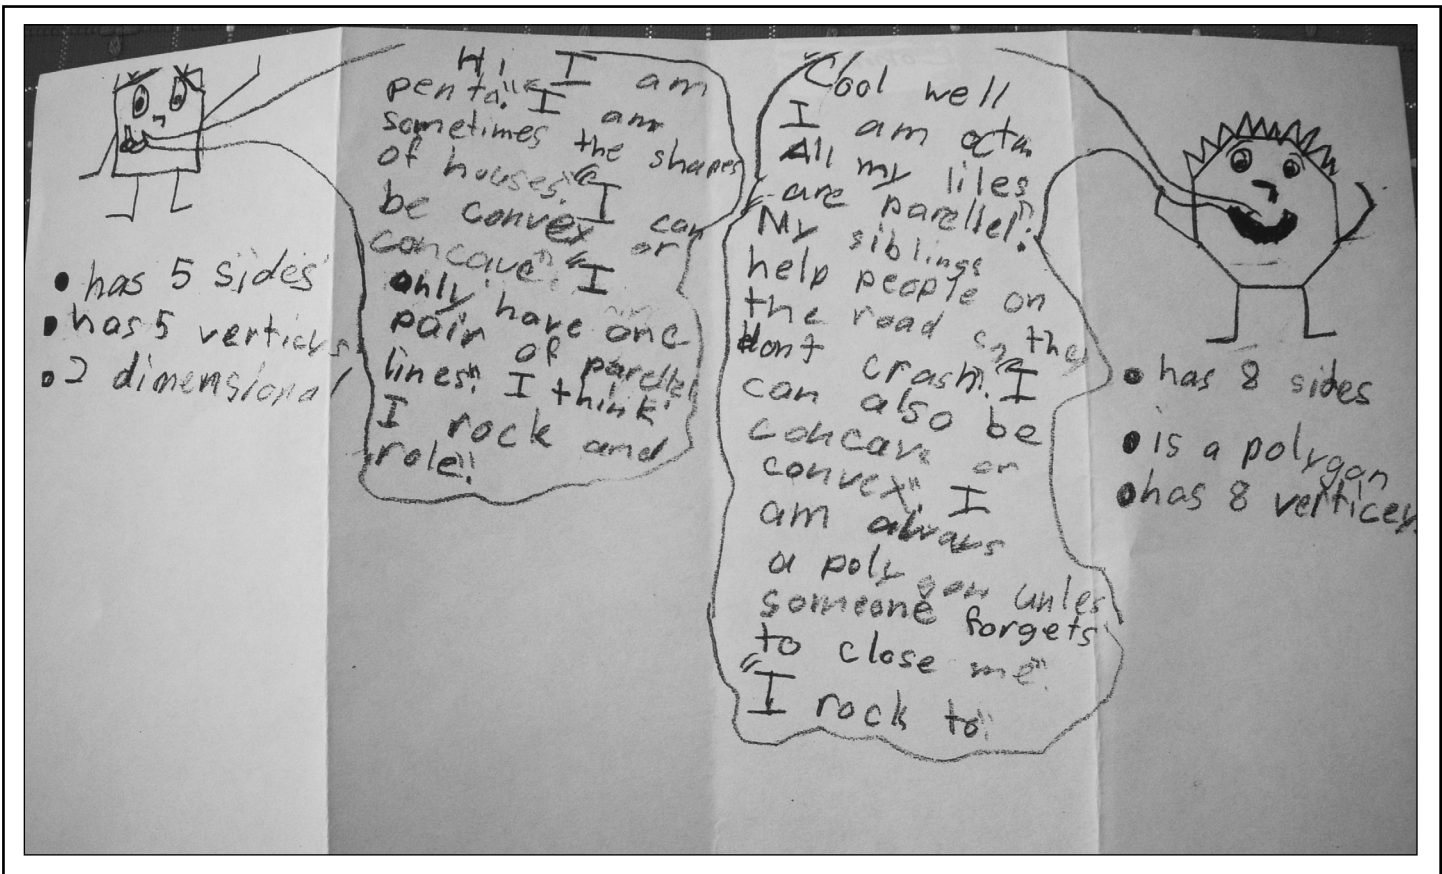 • has 5 sides
• has 5 verticks
• 2 dimensional
Hi, I am
penta." "I am
sometimes the shapes
of houses." "I can
be convex or
concave." "I
only have one
pair of parellel
lines." I think
I rock and
role".
"Cool well
I am octa
All my liles
are parellel".
"My siblings
help people on
the road so they
dont crash." "I
can also be
concave or
convex". I
am always
a polygon unles
someone forgets
to close me".
"I rock to".
• has 8 sides
• is a polygon
• has 8 vertices